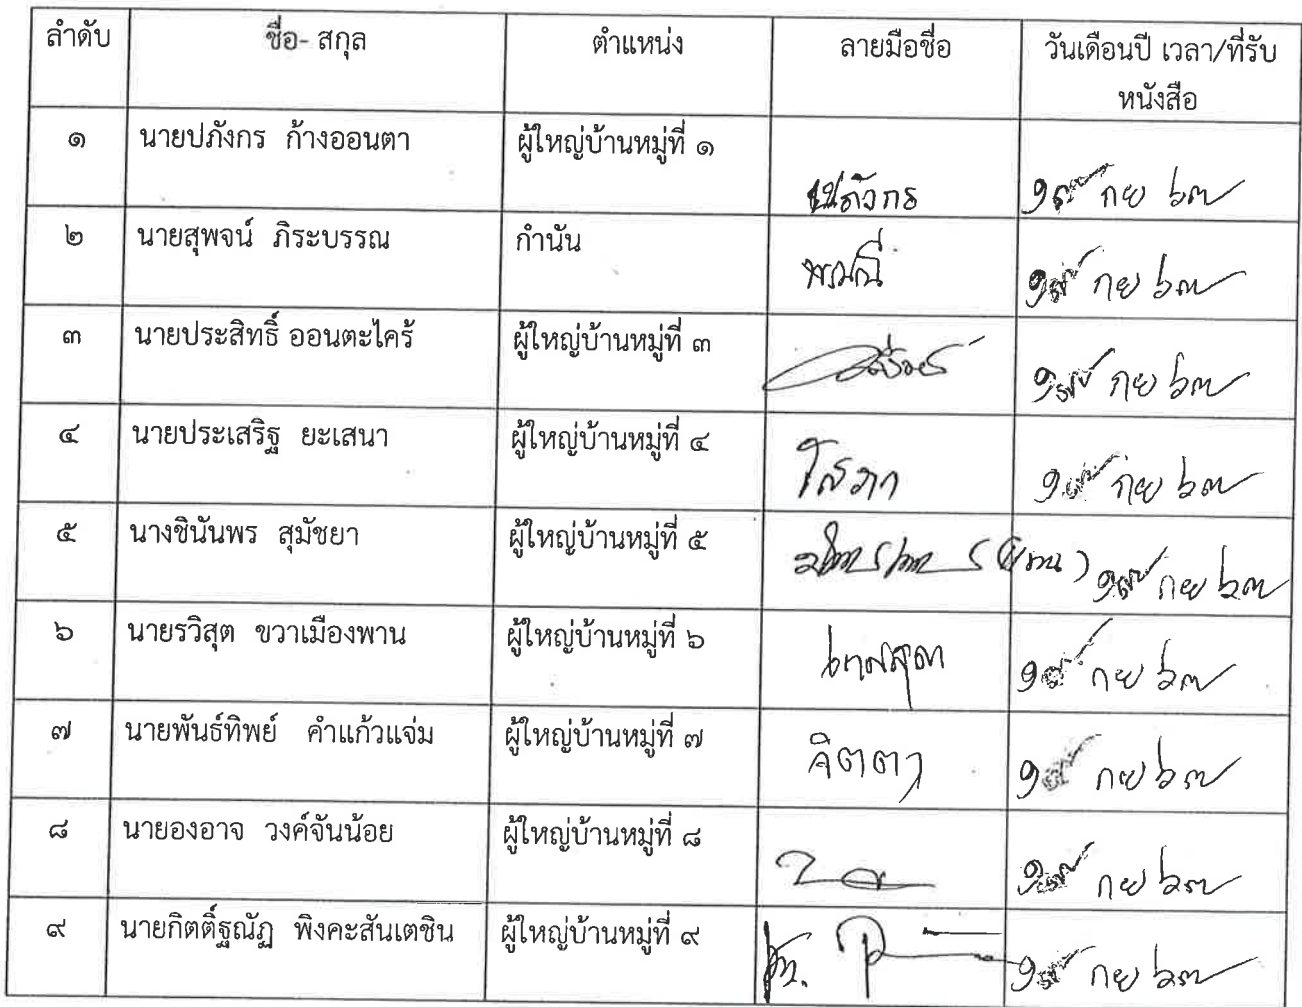 ลำดับ ชื่อ- สกุล ตำแหน่ง ลายมือชื่อ วันเดือนปี เวลา/ที่รับ
หนังสือ
๑ นายปภังกร ก้างออนตา ผู้ใหญ่บ้านหมู่ที่ ๑ ปภังกร กย ๖๓
๒ นายสุพจน์ ภิระบรรณ กำนัน กย ๖๓
๓ นายประสิทธิ์ ออนตะไคร้ ผู้ใหญ่บ้านหมู่ที่ ๓ กย ๖๓
๔ นายประเสริฐ ยะเสนา ผู้ใหญ่บ้านหมู่ที่ ๔ โสภา กย ๖๓
๕ นางชินันพร สุมัชยา ผู้ใหญ่บ้านหมู่ที่ ๕ กย ๖๓
๖ นายรวิสุต ขวาเมืองพาน ผู้ใหญ่บ้านหมู่ที่ ๖ กย ๖๓
๗ นายพันธ์ทิพย์ คำแก้วแจ่ม ผู้ใหญ่บ้านหมู่ที่ ๗ จิตตา กย ๖๓
๘ นายองอาจ วงค์จันน้อย ผู้ใหญ่บ้านหมู่ที่ ๘ กย ๖๓
๙ นายกิตติ์ฐณัฏ พิงคะสันเตชิน ผู้ใหญ่บ้านหมู่ที่ ๙ กย ๖๓